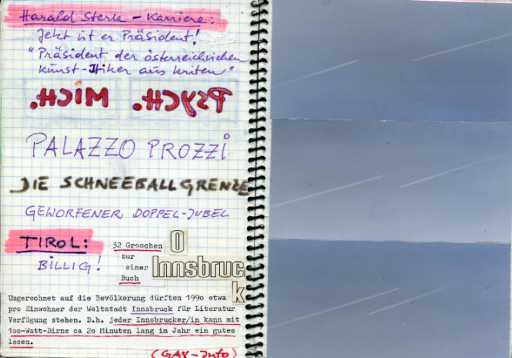 Harald Sterk - Karriere:
Jetzt ist er Präsident!
"Präsident der österreichischen
Kunst-Kritiker aus Kriten"
Psych. Mich.
PALAZZO PROZZI
DIE SCHNEEBALLGRENZE
GEWORFENER DOPPEL-JUBEL
TIROL:
BILLIG!
32 Groschen
zur
einer
Buch
O
Innsbruck
k
Umgerechnet auf die Bevölkerung dürften 1990 etwa
pro Einwohner der Weltstadt Innsbruck für Literatur
Verfügung stehen. D.h. jeder Innsbrucker/in kann mit
100-Watt-Birne ca 20 Minuten lang im Jahr ein gutes
lesen.
(GAV-Info)